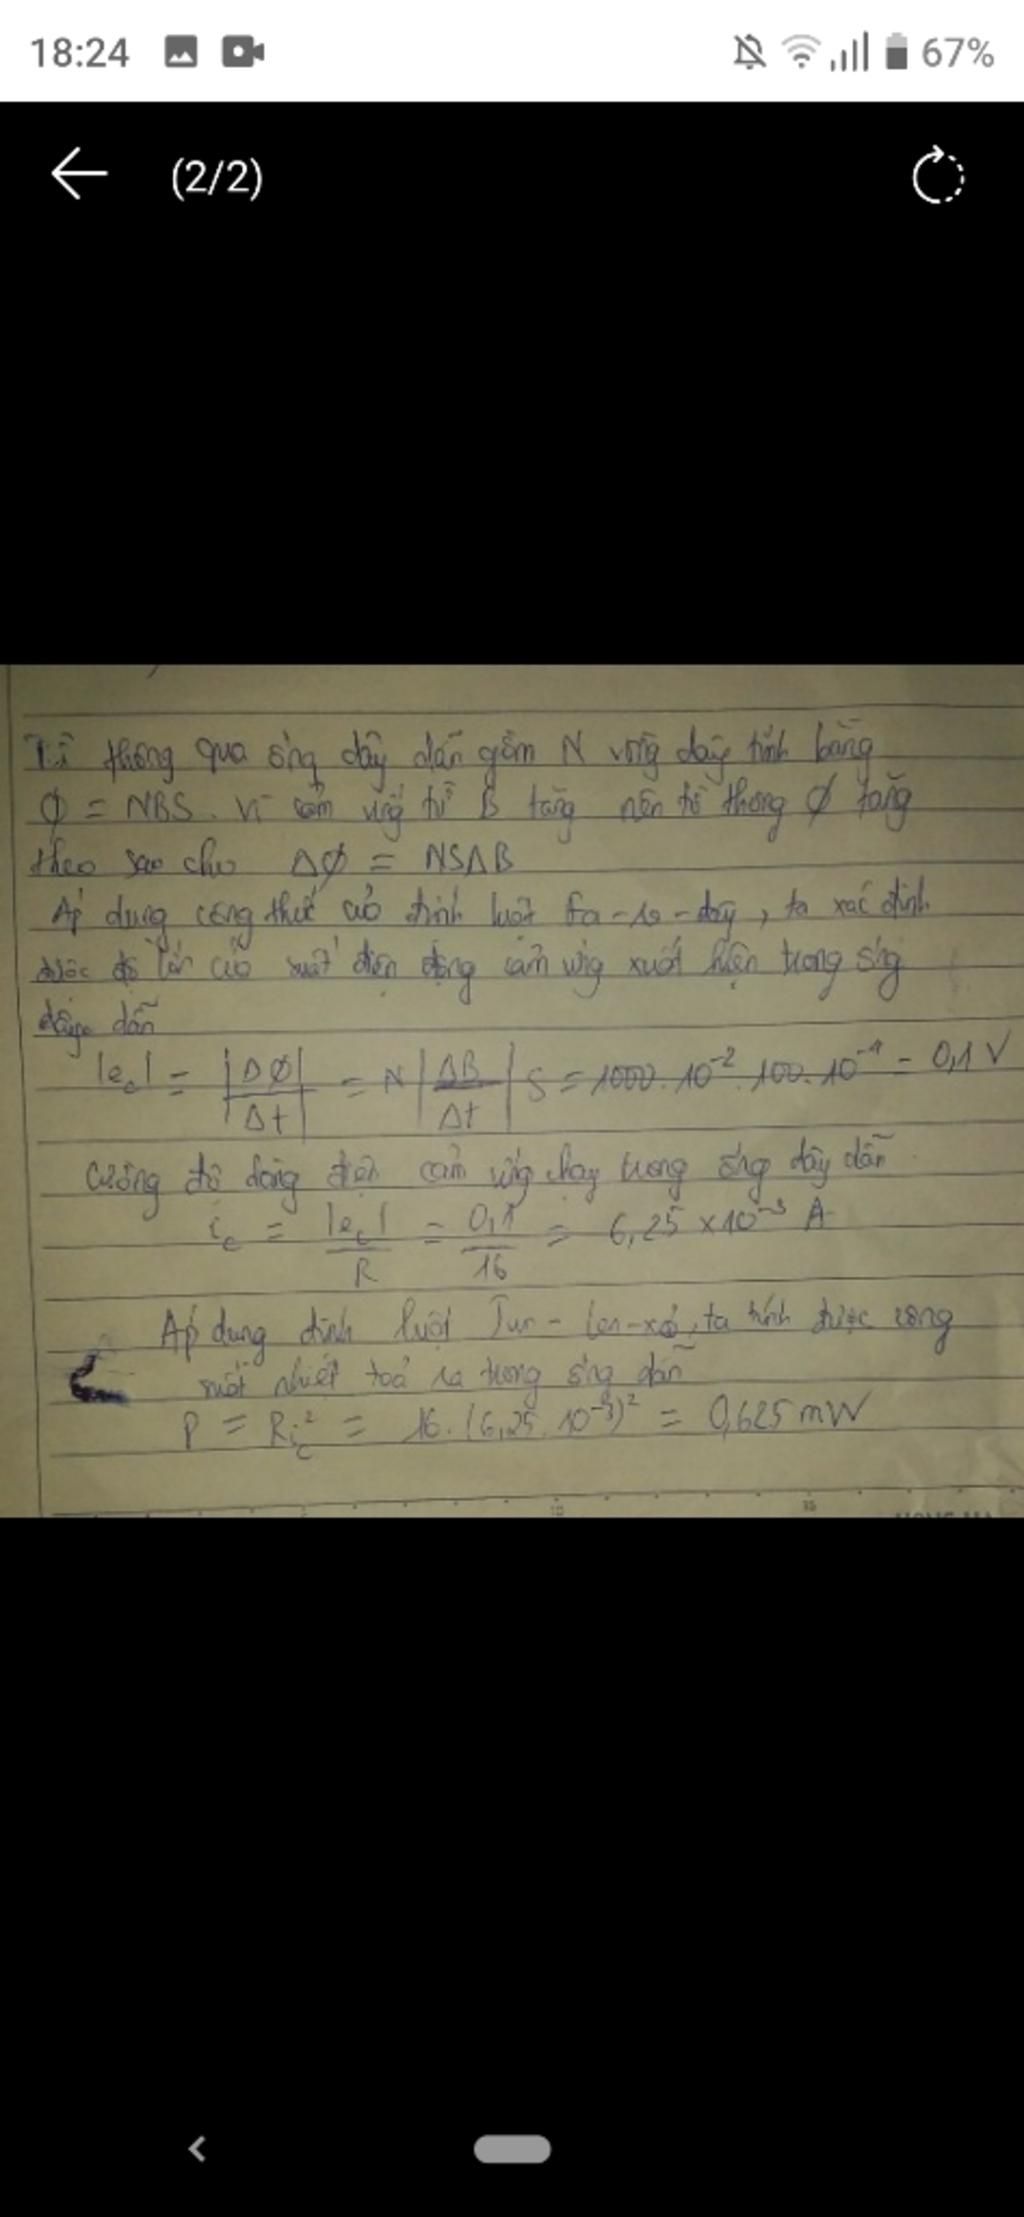 18:24 67%
(2/2)
Từ thông qua ống dây dẫn gồm N vòng dây tính bằng
Φ = NBS. Vì cảm ứng từ B tăng nên từ thông Φ tăng
theo sao cho ΔΦ = NSΔB
Áp dụng công thức của định luật Fa-ra-đây, ta xác định
được độ lớn của suất điện động cảm ứng xuất hiện trong ống
dây dẫn
|e_c| = |ΔΦ/Δt| = N |ΔB/Δt| S = 1000.10⁻².100.10⁻⁴ = 0,1 V
Cường độ dòng điện cảm ứng chạy trong ống dây dẫn
i_c = |e_c|/R = 0,1/16 = 6,25 × 10⁻³ A
Áp dụng định luật Jun-Len-xơ, ta tính được công
suất nhiệt toả ra trong ống dẫn
P = Ri_c² = 16.(6,25.10⁻³)² = 0,625 mW
10 15